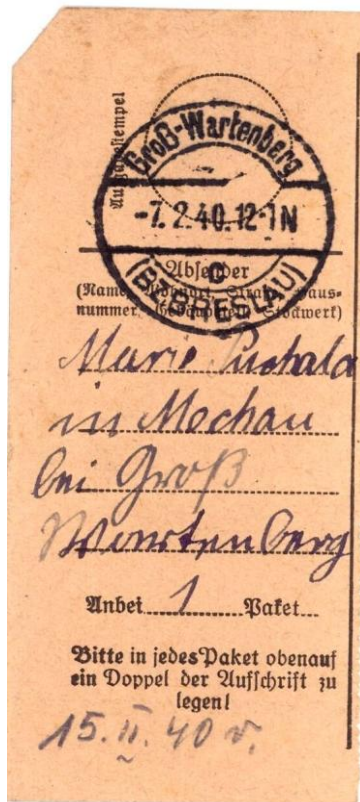 Aufgabestempel
Groß-Wartenberg
-7.2.40.12-1N
c
(BZ. BRESLAU)
Absender
(Name, Wohnort, Straße, Haus-
nummer, Gebäudeteil, Stockwerk)
Marie Puchala
in Mochau
bei Groß
Wartenberg
Anbei 1 Paket
Bitte in jedes Paket obenauf
ein Doppel der Aufschrift zu
legen!
15. II. 40 v.